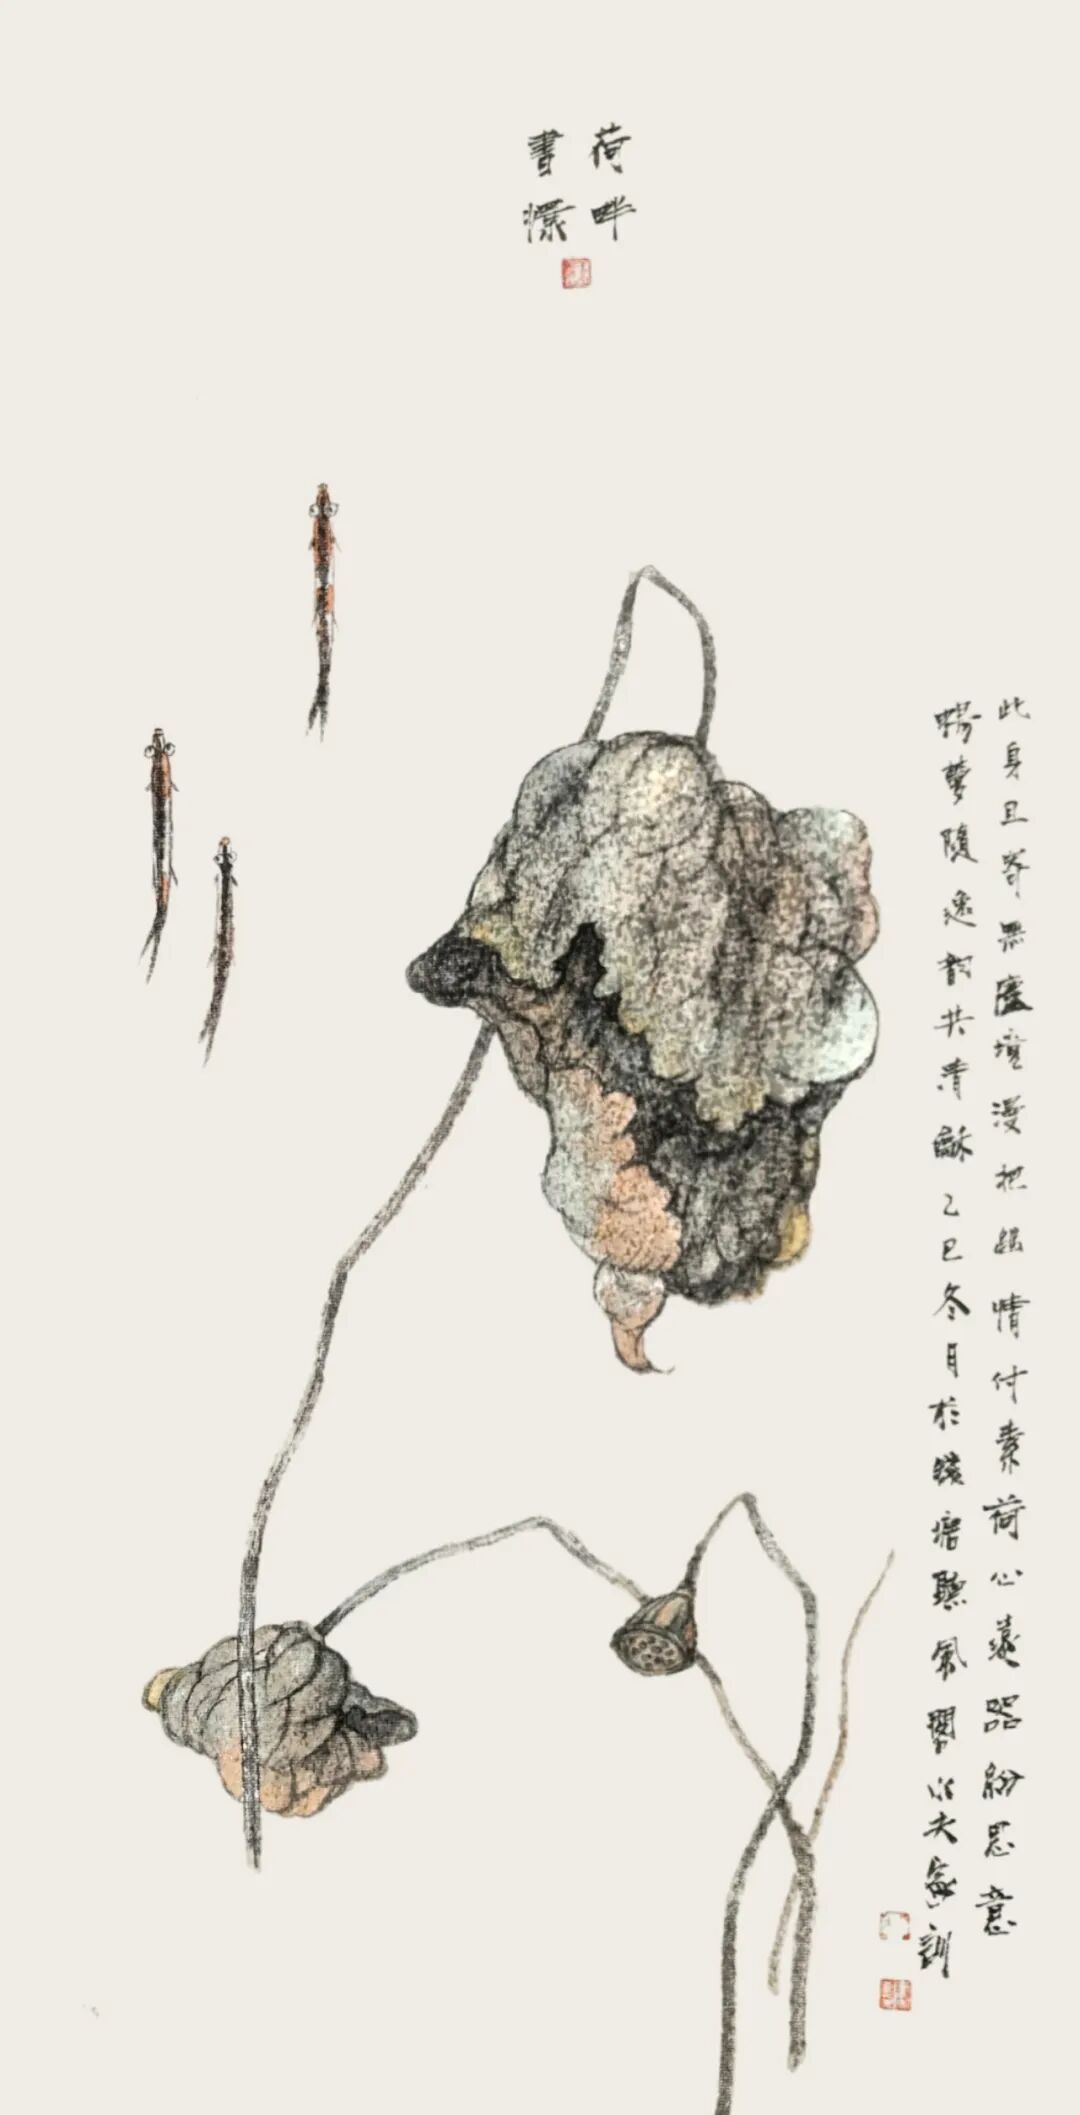 荷畔
書懷
此身且寄無塵境漫把幽情付素荷心遠器紛思意
暢夢隨逸韵共清龢乙巳冬月於錢塘聽氣閣以夫家訓